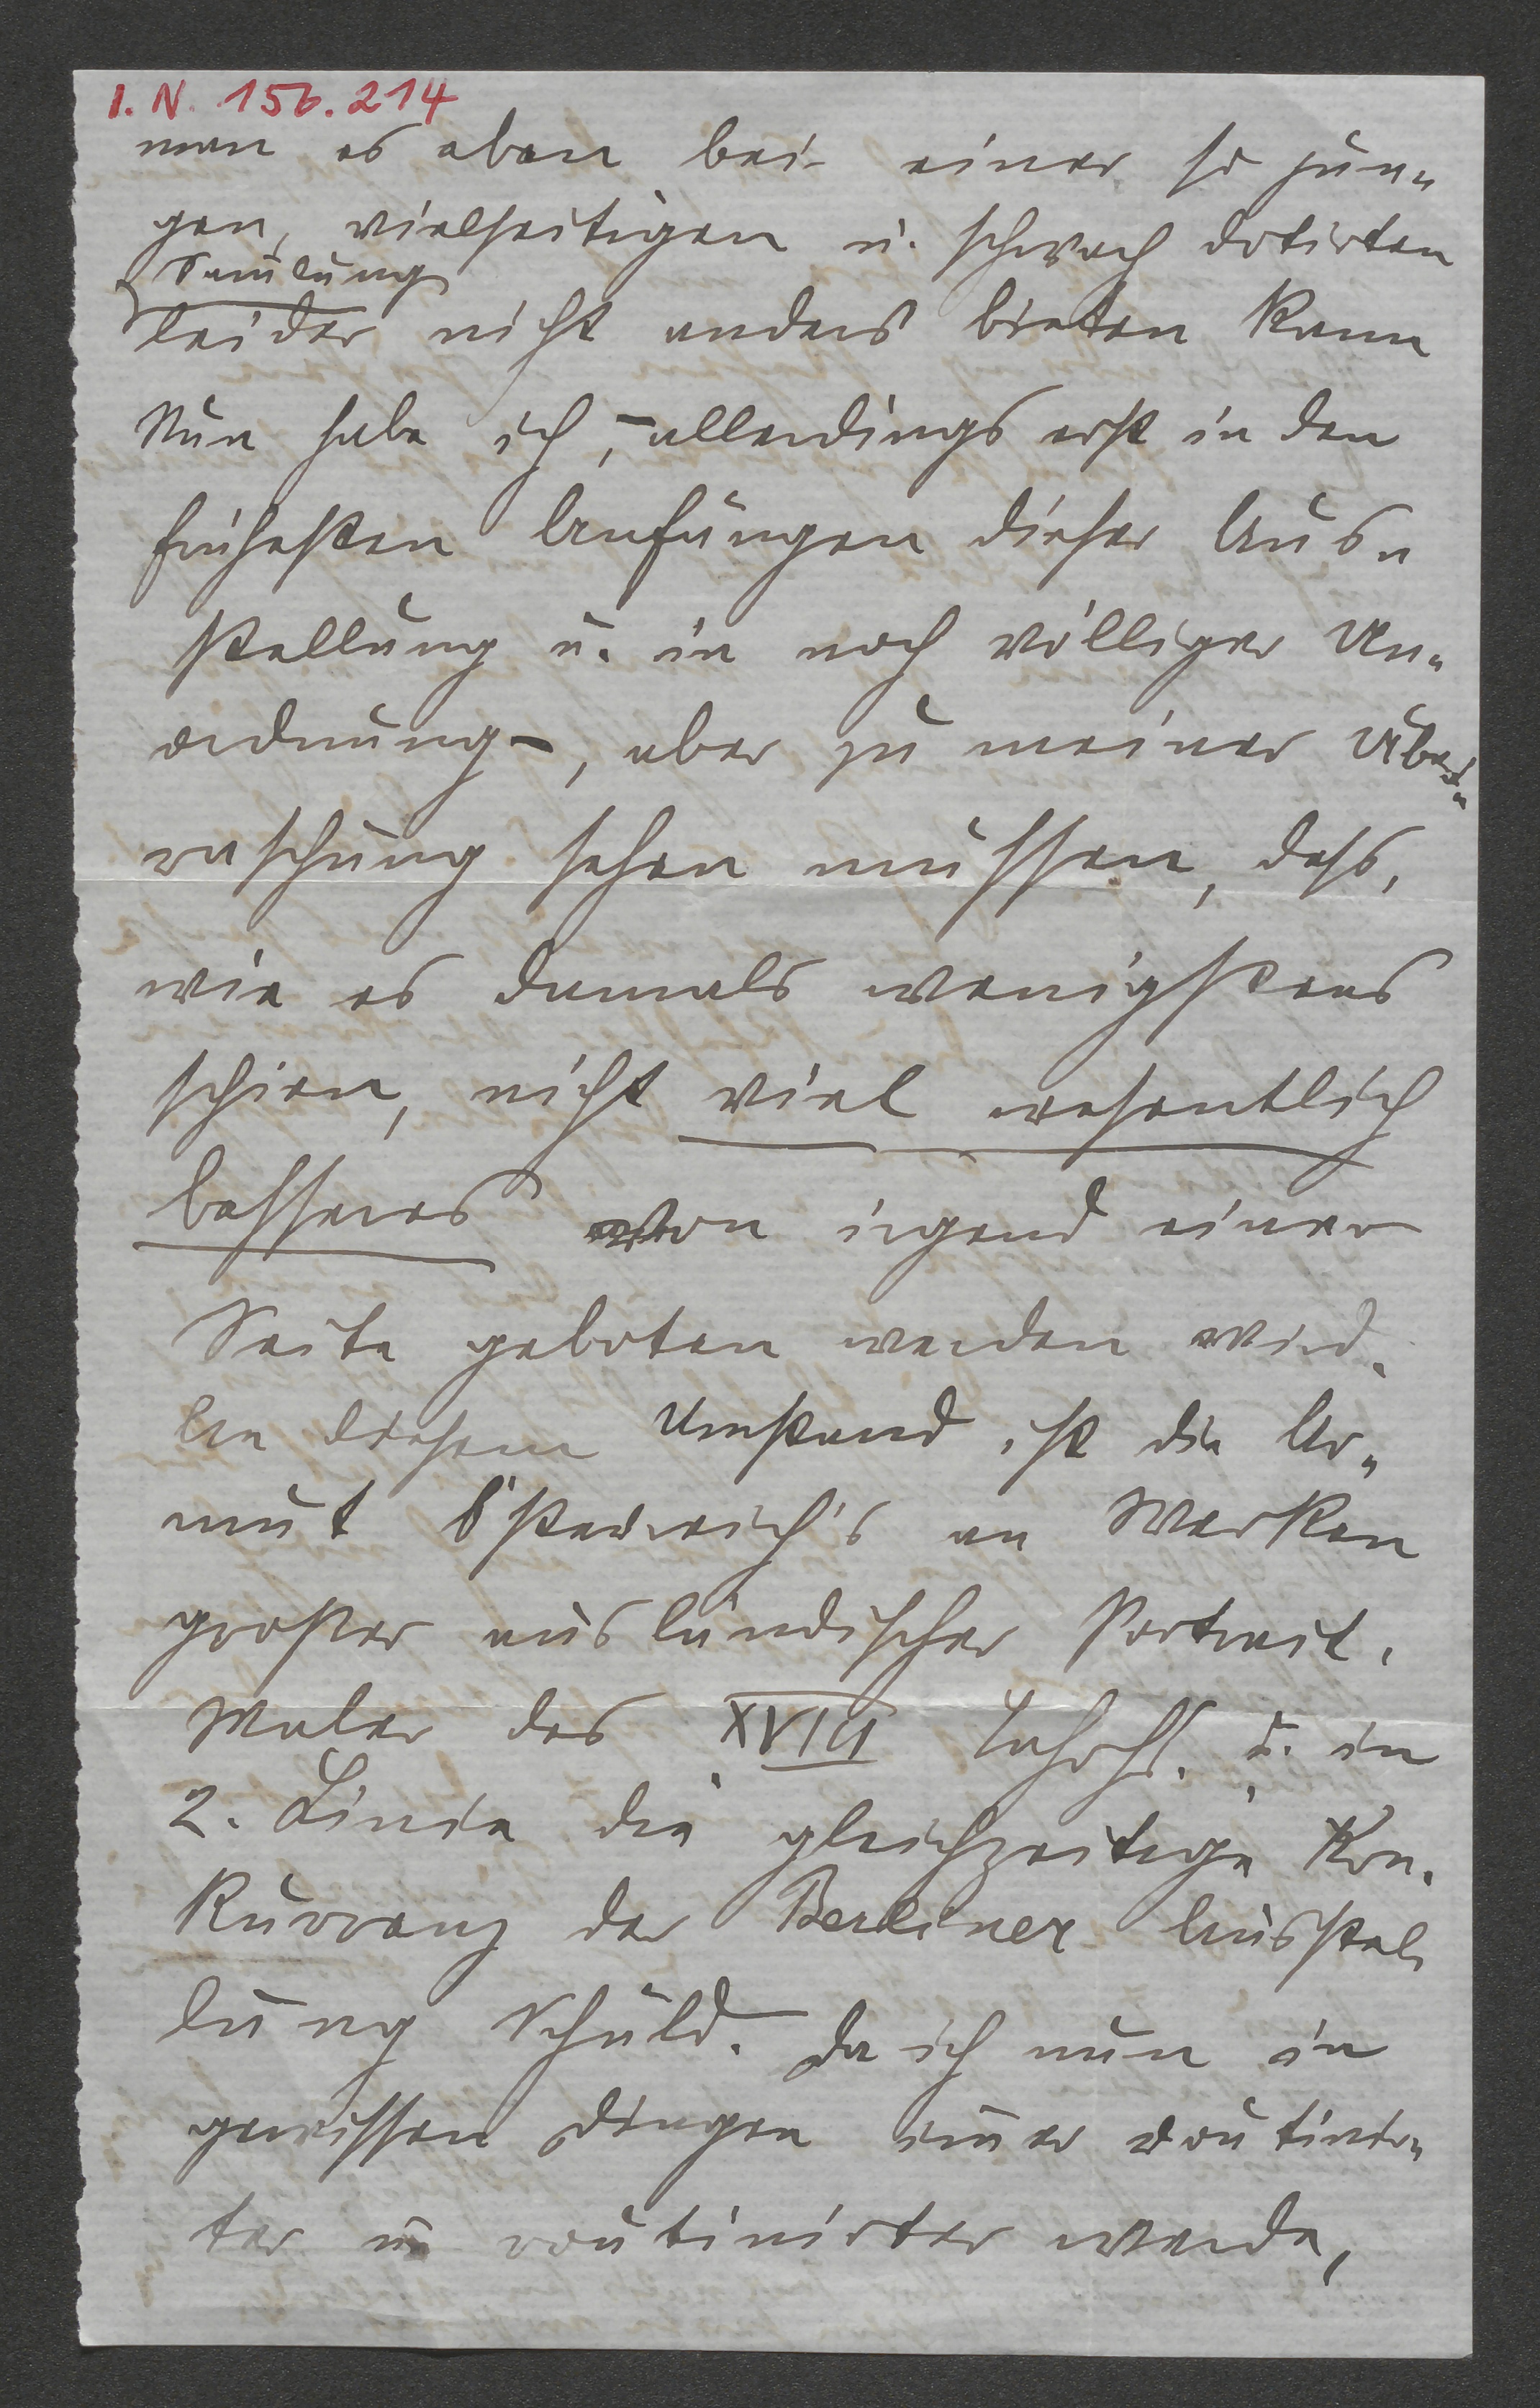 I. N. 156.214
man es eben bei einer so jun-
gen, vielseitigen u. schwach dotirten
Sam̄lung
leider nicht anders bieten kann
Nun habe ich, – allerdings erst in den
frühesten Anfängen dieser Aus-
stellung u. in noch völliger Un-
ordnung –, aber zu meiner Über-
raschung sehen müssen, dass,
wie es damals wenigstens
schien, nicht viel wesentlich
besseres von irgend einer
Seite geboten werden wird.
An diesem Umstand ist die Ar-
mut Österreich's an Werken
großer ausländischer Portrait-
Maler des XVIII Jahrh. u. in
2. Linie die gleichzeitige Kon-
kurrenz der Berliner Ausstel-
lung Schuld. Da ich nun in
gewissen Dingen im̄er routinir-
ter u. routinirter werde,